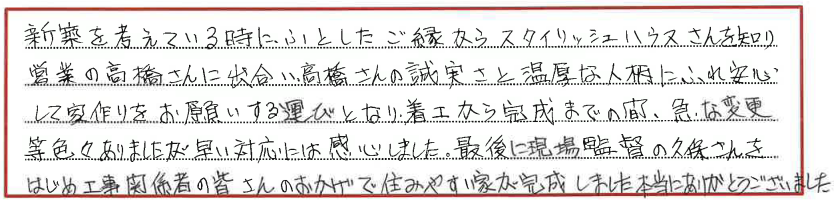 新築を考えている時にふとしたご縁からスタイリッシュハウスさんを知り
営業の高橋さんに出合い、高橋さんの誠実さと温厚な人柄にふれ安心
して家作りをお願いする運びとなり、着工から完成までの間、急な変更
等色々ありましたが早い対応には感心しました。最後に現場監督の久保さんを
はじめ工事関係者の皆さんのおかげで住みやすい家が完成しました本当にありがとうございました